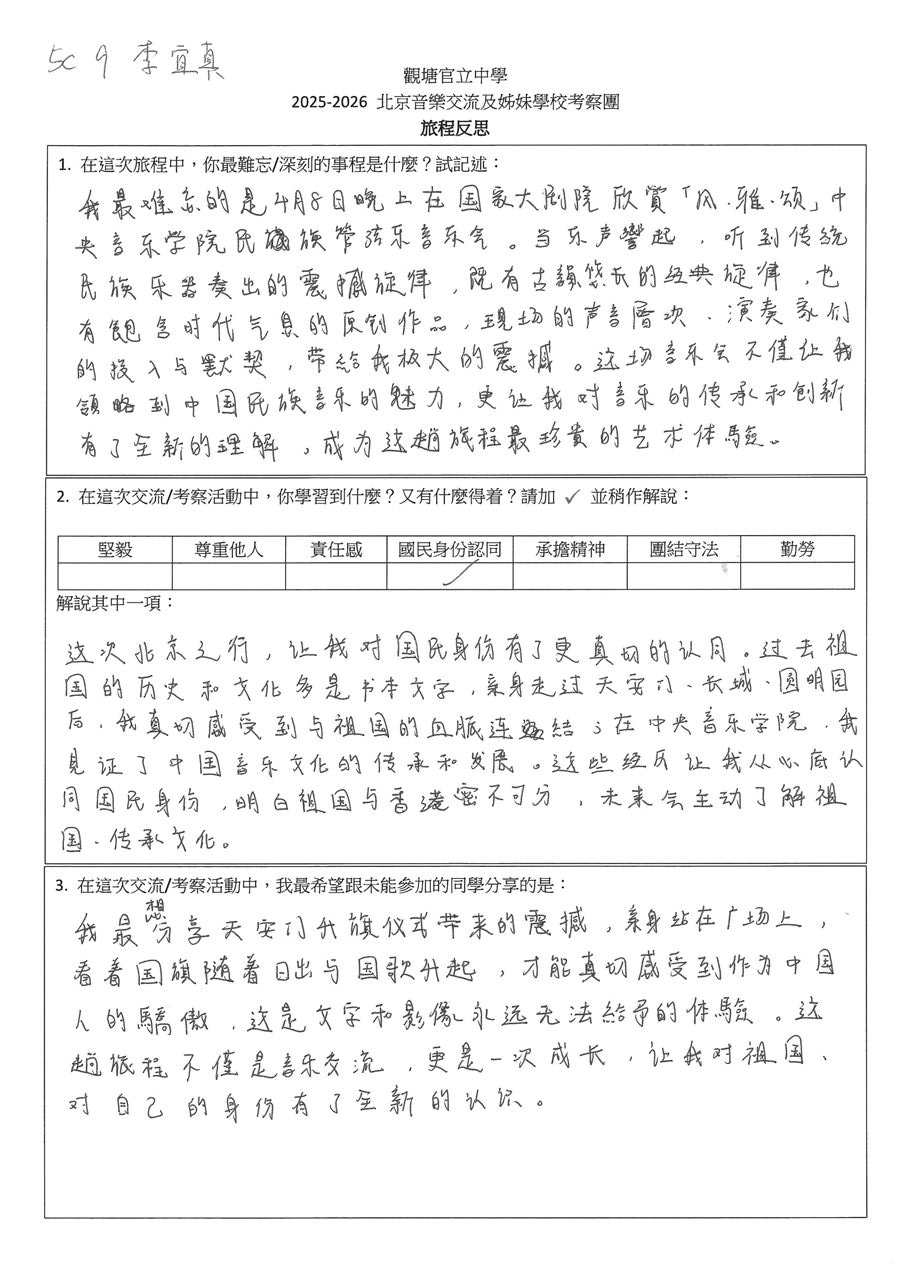 5C 9 李宜真
觀塘官立中學
2025-2026 北京音樂交流及姊妹學校考察團
旅程反思
1. 在這次旅程中，你最難忘/深刻的事程是什麼？試記述：
我最难忘的是4月8日晚上在国家大剧院欣賞「风·雅·頌」中
央音乐学院民族管弦乐音乐会。当乐声響起，听到传統
民族乐器奏出的震撼旋律，既有古韻悠长的经典旋律，也
有飽含时代气息的原创作品，現场的声音層次、演奏家们
的投入与默契，带給我极大的震撼。这场音乐会不僅让我
領略到中国民族音乐的魅力，更让我对音乐的传承和创新
有了全新的理解，成为这趟旅程最珍貴的艺术体驗。
2. 在這次交流/考察活動中，你學習到什麼？又有什麼得着？請加 ✓ 並稍作解說：
堅毅 尊重他人 責任感 國民身份認同 承擔精神 團結守法 勤勞
✓
解說其中一項：
这次北京之行，让我对国民身份有了更真切的认同。过去祖
国的历史和文化多是书本文字，亲身走过天安门、长城、圆明园
后，我真切感受到与祖国的血脈连結；在中央音乐学院，我
見证了中国音乐文化的传承和发展。这些经历让我从心底认
同国民身份，明白祖国与香港密不可分，未来会主动了解祖
国、传承文化。
3. 在這次交流/考察活動中，我最希望跟未能參加的同學分享的是：
我最想分享天安门升旗仪式带来的震撼，亲身站在广场上，
看着国旗随着日出与国歌升起，才能真切感受到作为中国
人的驕傲，这是文字和影像永远无法給予的体驗。这
趟旅程不僅是音乐交流，更是一次成长，让我对祖国、
对自己的身份有了全新的认识。